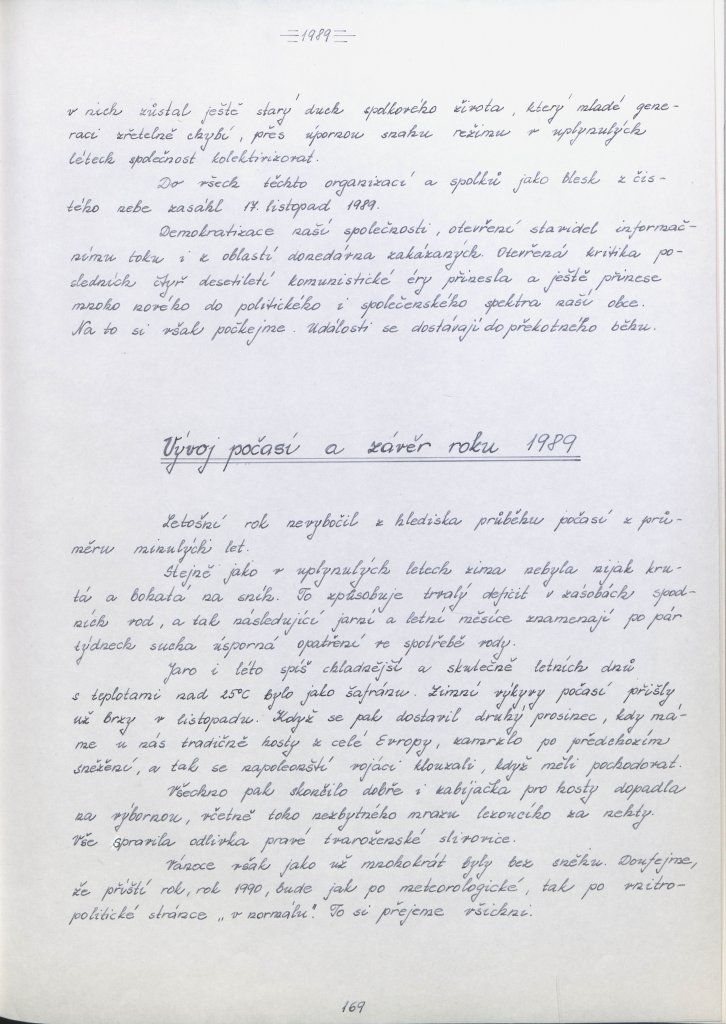 1989
v nich zůstal ještě starý duch spolkového života, který mladé gene-
raci zřetelně chybí, přes úpornou snahu režimu v uplynulých
létech společnost kolektivizovat.
Do všech těchto organizací a spolků jako blesk z čis-
tého nebe zasáhl 17. listopad 1989.
Demokratizace naší společnosti, otevření stavidel informač-
nímu toku i z oblastí donedávna zakázaných. Otevřená kritika po-
sledních čtyř desetiletí komunistické éry přinesla a ještě přinese
mnoho nového do politického i společenského spektra naší obce.
Na to si však počkejme. Události se dostávají do překotného běhu.
Vývoj počasí a závěr roku 1989
Letošní rok nevybočil z hlediska průběhu počasí z prů-
měru minulých let.
Stejně jako v uplynulých letech zima nebyla nijak kru-
tá a bohatá na sníh. To způsobuje trvalý deficit v zásobách spod-
ních vod, a tak následující jarní a letní měsíce znamenají po pár
týdnech sucha úsporná opatření ve spotřebě vody.
Jaro i léto spíš chladnější a skutečně letních dnů
s teplotami nad 25°C bylo jako šafránu. Zimní výkyvy počasí přišly
už brzy v listopadu. Když se pak dostavil druhý prosinec, kdy má-
me u nás tradičně hosty z celé Evropy, zamrzlo po předchozím
sněžení, a tak se napoleonští vojáci klouzali, když měli pochodovat.
Všechno pak skončilo dobře i zabíjačka pro hosty dopadla
na výbornou, včetně toho nezbytného mrazu lezoucího za nehty.
Vše spravila odlivka pravé tvaroženské slivovice.
Vánoce však jako už mnohokrát byly bez sněhu. Doufejme,
že příští rok, rok 1990, bude jak po meteorologické, tak po vnitro-
politické stránce „v normálu". To si přejeme všichni.
169